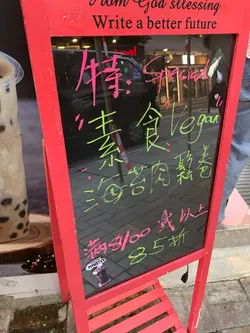 from God stressing
Write a better future
特 Special
素食 Vegan
海苔肉鬆卷
滿$100 或以上
85折